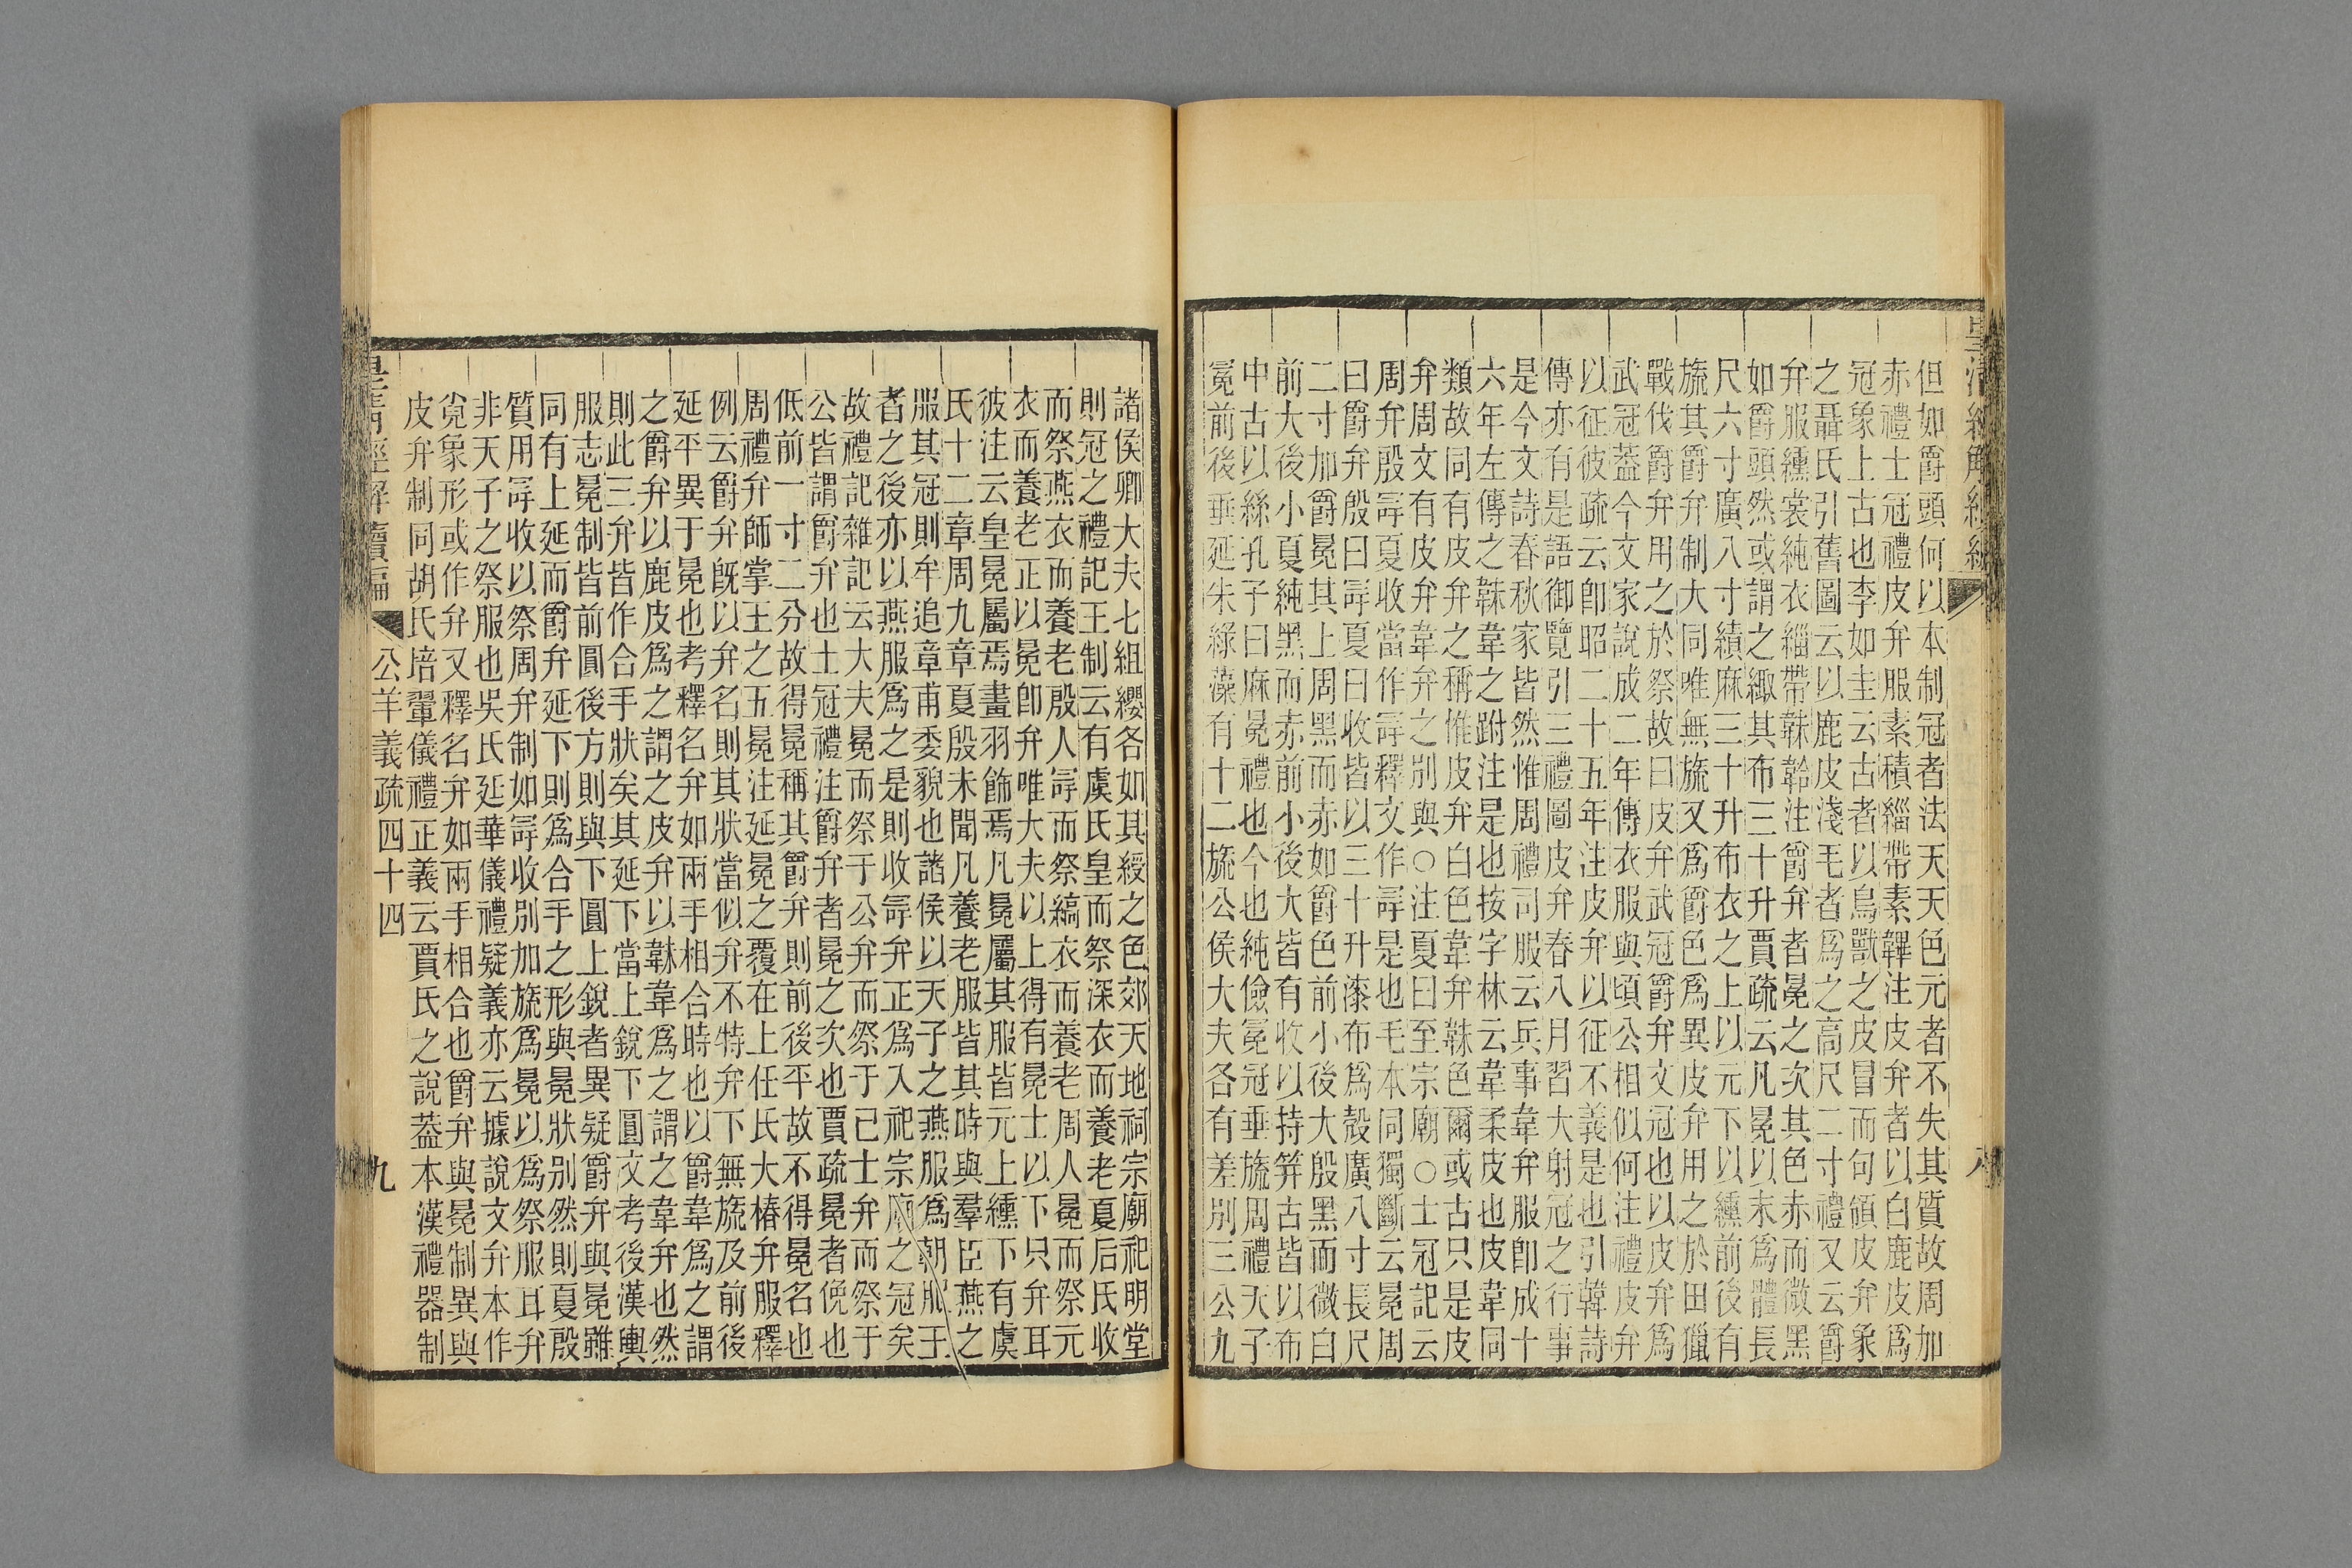 皇清經解續編
八
但如爵頭何以本制冠者法天天色元者不失其質故周加
赤禮士冠禮皮弁服素積緇帶素韠注皮弁者以白鹿皮爲
冠象上古也李如圭云古者以鳥獸之皮冒而句領皮弁象
之聶氏引舊圖云以鹿皮淺毛者爲之高尺二寸禮又云爵
弁服纁裳純衣緇帶韎韐注爵弁者冕之次其色赤而微黑
如爵頭然或謂之緅其布三十升賈疏云凡冕以木爲體長
尺六寸廣八寸績麻三十升布衣之上以元下以纁前後有
旒其爵弁制大同唯無旒又爲爵色爲異皮弁用之於田獵
戰伐爵弁用之於祭故曰皮弁武冠爵弁文冠也以皮弁爲
武冠葢今文家說成二年傳衣服與頃公相似何注禮皮弁
以征彼疏云卽昭二十五年注皮弁以征不義是也引韓詩
傳亦有是語御覽引三禮圖皮弁春八月習大射冠之行事
是今文詩春秋家皆然惟周禮司服云兵事韋弁服卽成十
六年左傳之韎韋之跗注是也按字林云韋柔皮也皮韋同
類故同有皮弁之稱惟皮弁白色韋弁韎色爾或古只是皮
弁周文有皮弁韋弁之別與○注夏曰至宗廟○士冠記云
周弁殷冔夏收當作冔釋文作冔是也毛本同獨斷云冕周
曰爵弁殷曰冔夏曰收皆以三十升漆布爲殼廣八寸長尺
二寸加爵冕其上周黑而赤如爵色前小後大殷黑而微白
前大後小夏純黑而赤前小後大皆有收以持笄古皆以布
中古以絲孔子曰麻冕禮也今也純儉冕冠垂旒周禮天子
冕前後垂延朱綠藻有十二旒公侯大夫各有差別三公九
諸侯卿大夫七組纓各如其綬之色郊天地祠宗廟祀明堂
則冠之禮記王制云有虞氏皇而祭深衣而養老夏后氏收
而祭燕衣而養老殷人冔而祭縞衣而養老周人冕而祭元
衣而養老正以冕卽弁唯大夫以上得有冕士以下只弁耳
彼注云皇冕屬焉畫羽飾焉凡冕屬其服皆元上纁下有虞
氏十二章周九章夏殷未聞凡養老服皆其時與羣臣燕之
服其冠則牟追章甫委貌也諸侯以天子之燕服爲朝服王
者之後亦以燕服爲之是則收冔弁正爲入祀宗廟之冠矣
故禮記雜記云大夫冕而祭于公弁而祭于已士弁而祭于
公皆謂爵弁也士冠禮注爵弁者冕之次也賈疏冕者俛也
低前一寸二分故得冕稱其爵弁則前後平故不得冕名也
周禮弁師掌王之五冕注延冕之覆在上任氏大椿弁服釋
例云爵弁旣以弁名則其狀當似弁不特弁下無旒及前後
延平異于冕也考釋名弁如兩手相合時也以爵韋爲之謂
之爵弁以鹿皮爲之謂之皮弁以韎韋爲之謂之韋弁也然
則此三弁皆作合手狀矣其延下當上銳下圓又考後漢輿
服志冕制皆前圓後方則與下圓上銳者異疑爵弁與冕雖
同有上延而爵弁延下則爲合手之形與冕狀別然則夏殷
質用冔收以祭周弁制如冔收別加旒爲冕以爲祭服耳弁
非天子之祭服也吳氏延華儀禮疑義亦云據說文弁本作
㝸象形或作弁又釋名弁如兩手相合也爵弁與冕制異與
皮弁制同胡氏培翬儀禮正義云賈氏之說葢本漢禮器制
皇清經解續編
公羊義疏四十四
九